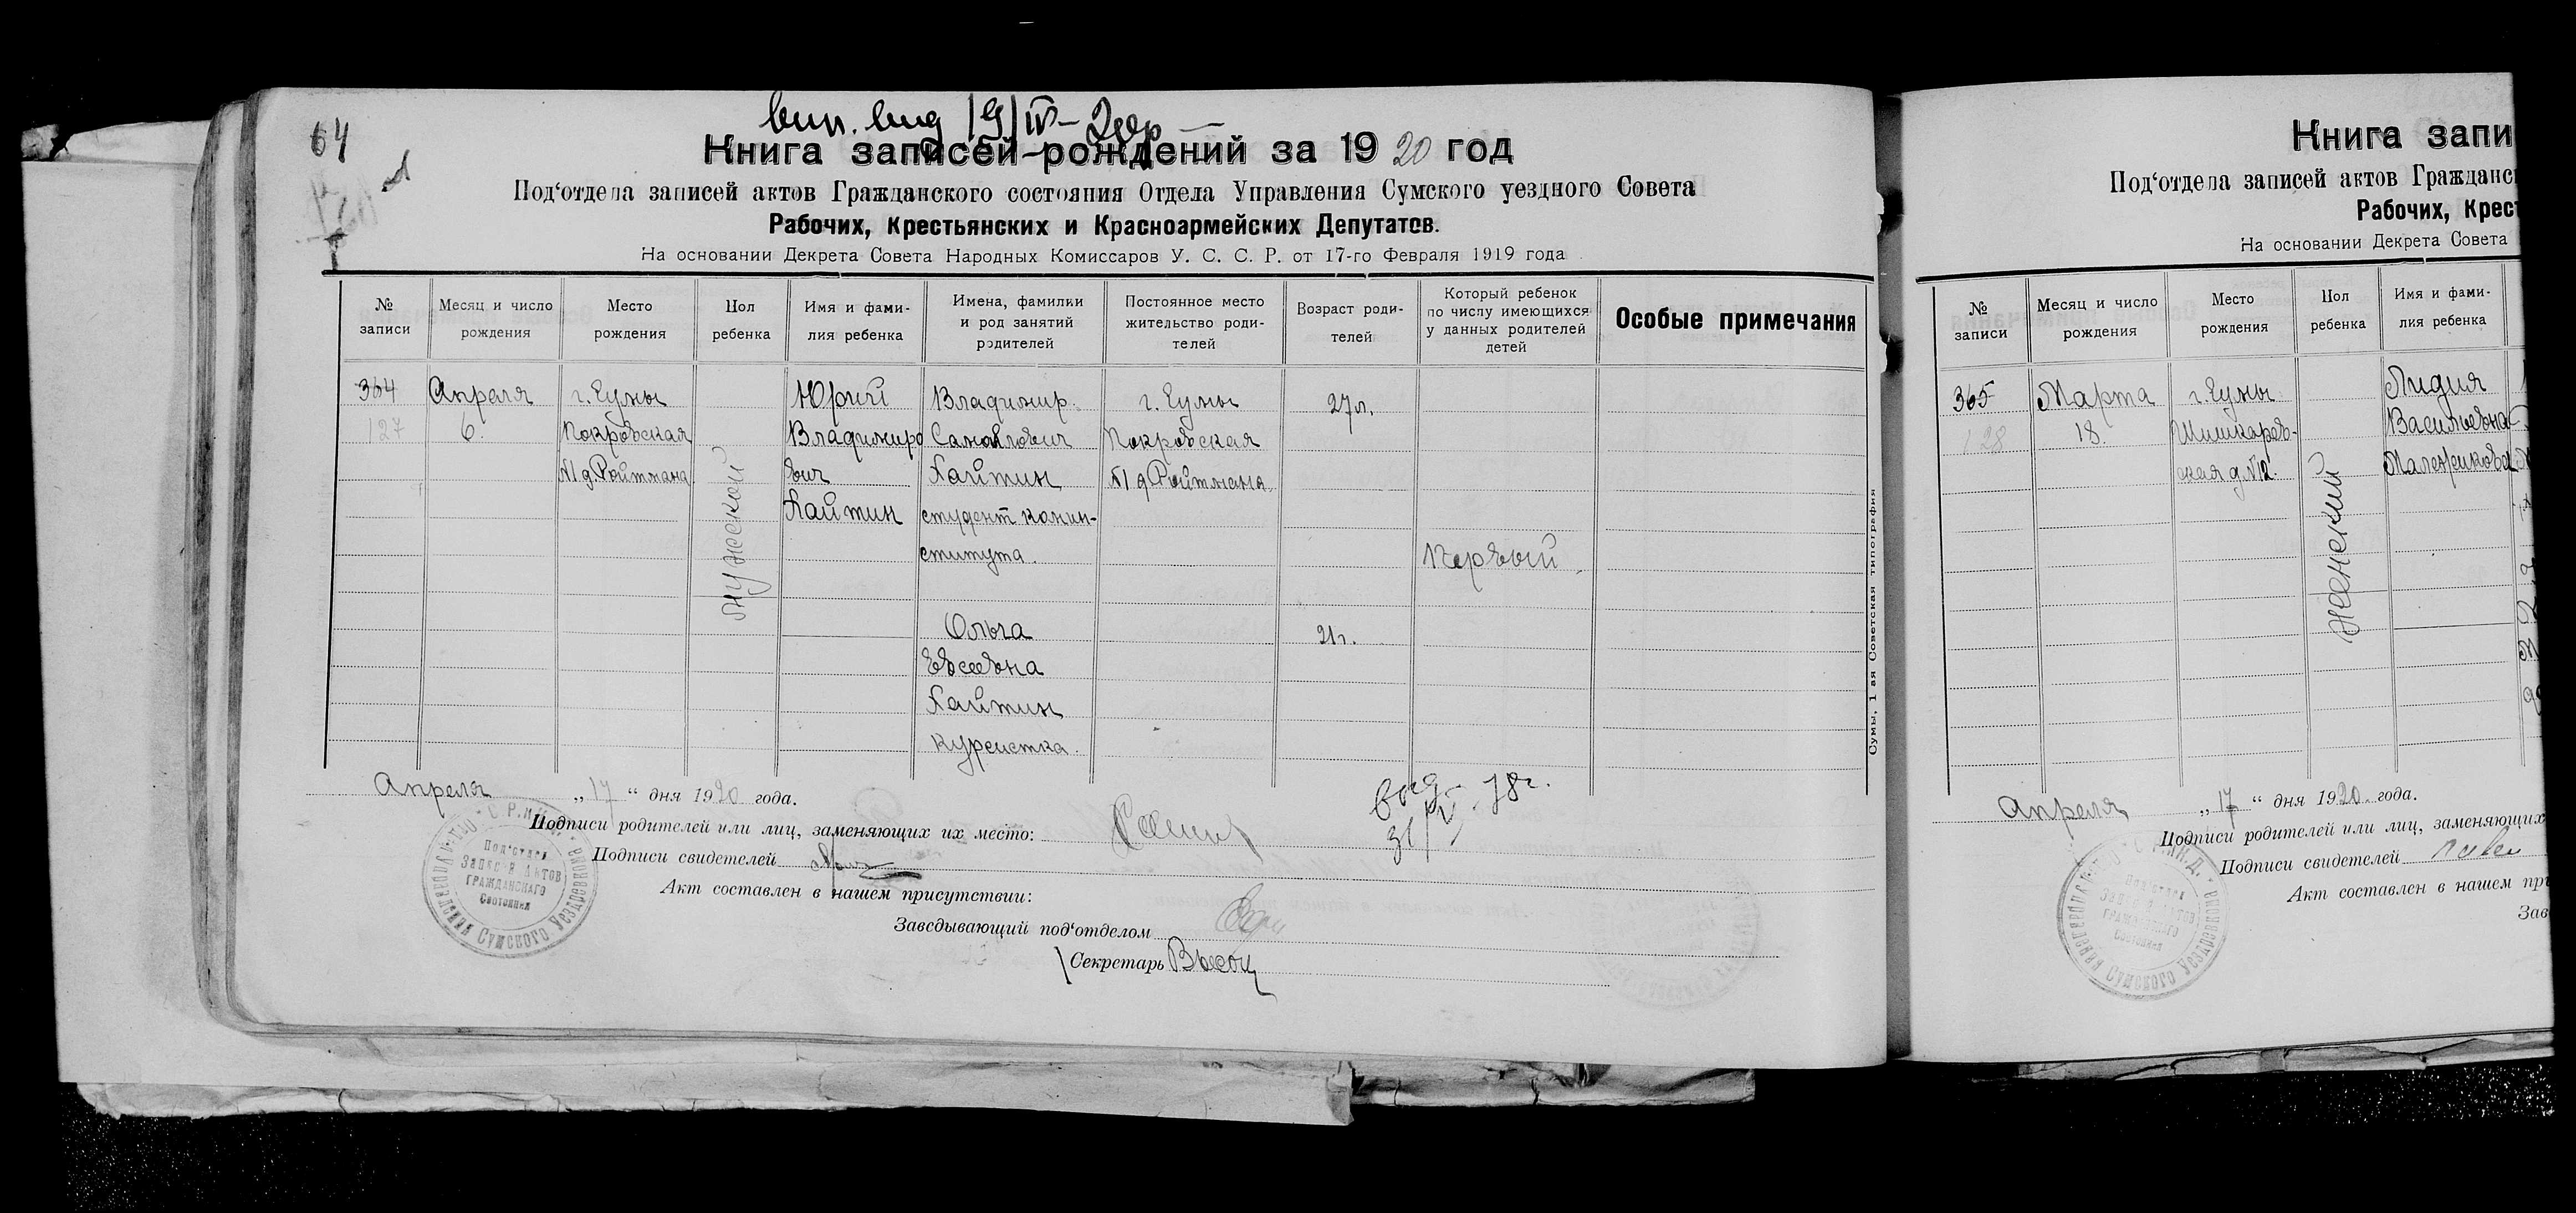 64
Книга записей рождений за 1920 год
Под‘отдела записей актов Гражданского состояния Отдела Управления Сумского уездного Совета
Рабочих, Крестьянских и Красноармейских Депутатов.
На основании Декрета Совета Народных Комиссаров У. С. С. Р. от 17-го Февраля 1919 года
№ записи
Месяц и число рождения
Место рождения
Пол ребенка
Имя и фами-
лия ребенка
Имена, фамилии
и род занятий
родителей
Постоянное место
жительство роди-
телей
Возраст роди-
телей
Который ребенок
по числу имеющихся
у данных родителей
детей
Особые примечания
364
127
Апреля
6.
г. Сумы
Покровская
№1 д. Ройтмана
мужеской
Юрий
Владимиро
вич
Хайтин
Владимир
Самойлович
Хайтин
студент
ститута.
Ольга
Евсеевна
Хайтин
курсистка
г. Сумы
Покровская
№1 д Ройтмана
27 л.
21 г.
Первый
Апреля „17“ дня 1920 года.
Подписи родителей или лиц, заменяющих их место:
Подписи свидетелей
Акт составлен в нашем присутствии:
Заведывающий под‘отделом
Секретарь
Сумы, 1 ая Советская типография
Под‘отдел
Записей Актов
ГРАЖДАНСКАГО
Состояния
Сумского
Книга запи
Под‘отдела записей актов Гражданс
Рабочих, Крест
На основании Декрета Совета
№ записи
Месяц и число рождения
Место рождения
Пол ребенка
Имя и фами-
лия ребенка
365
128
Марта
18.
г. Сумы
Шишкарев-
ская д №12.
женский
Лидия
Васильевна
Апреля „17“ дня 1920. года.
Подписи родителей или лиц, заменяющих
Подписи свидетелей
Акт составлен в нашем пр
Зав